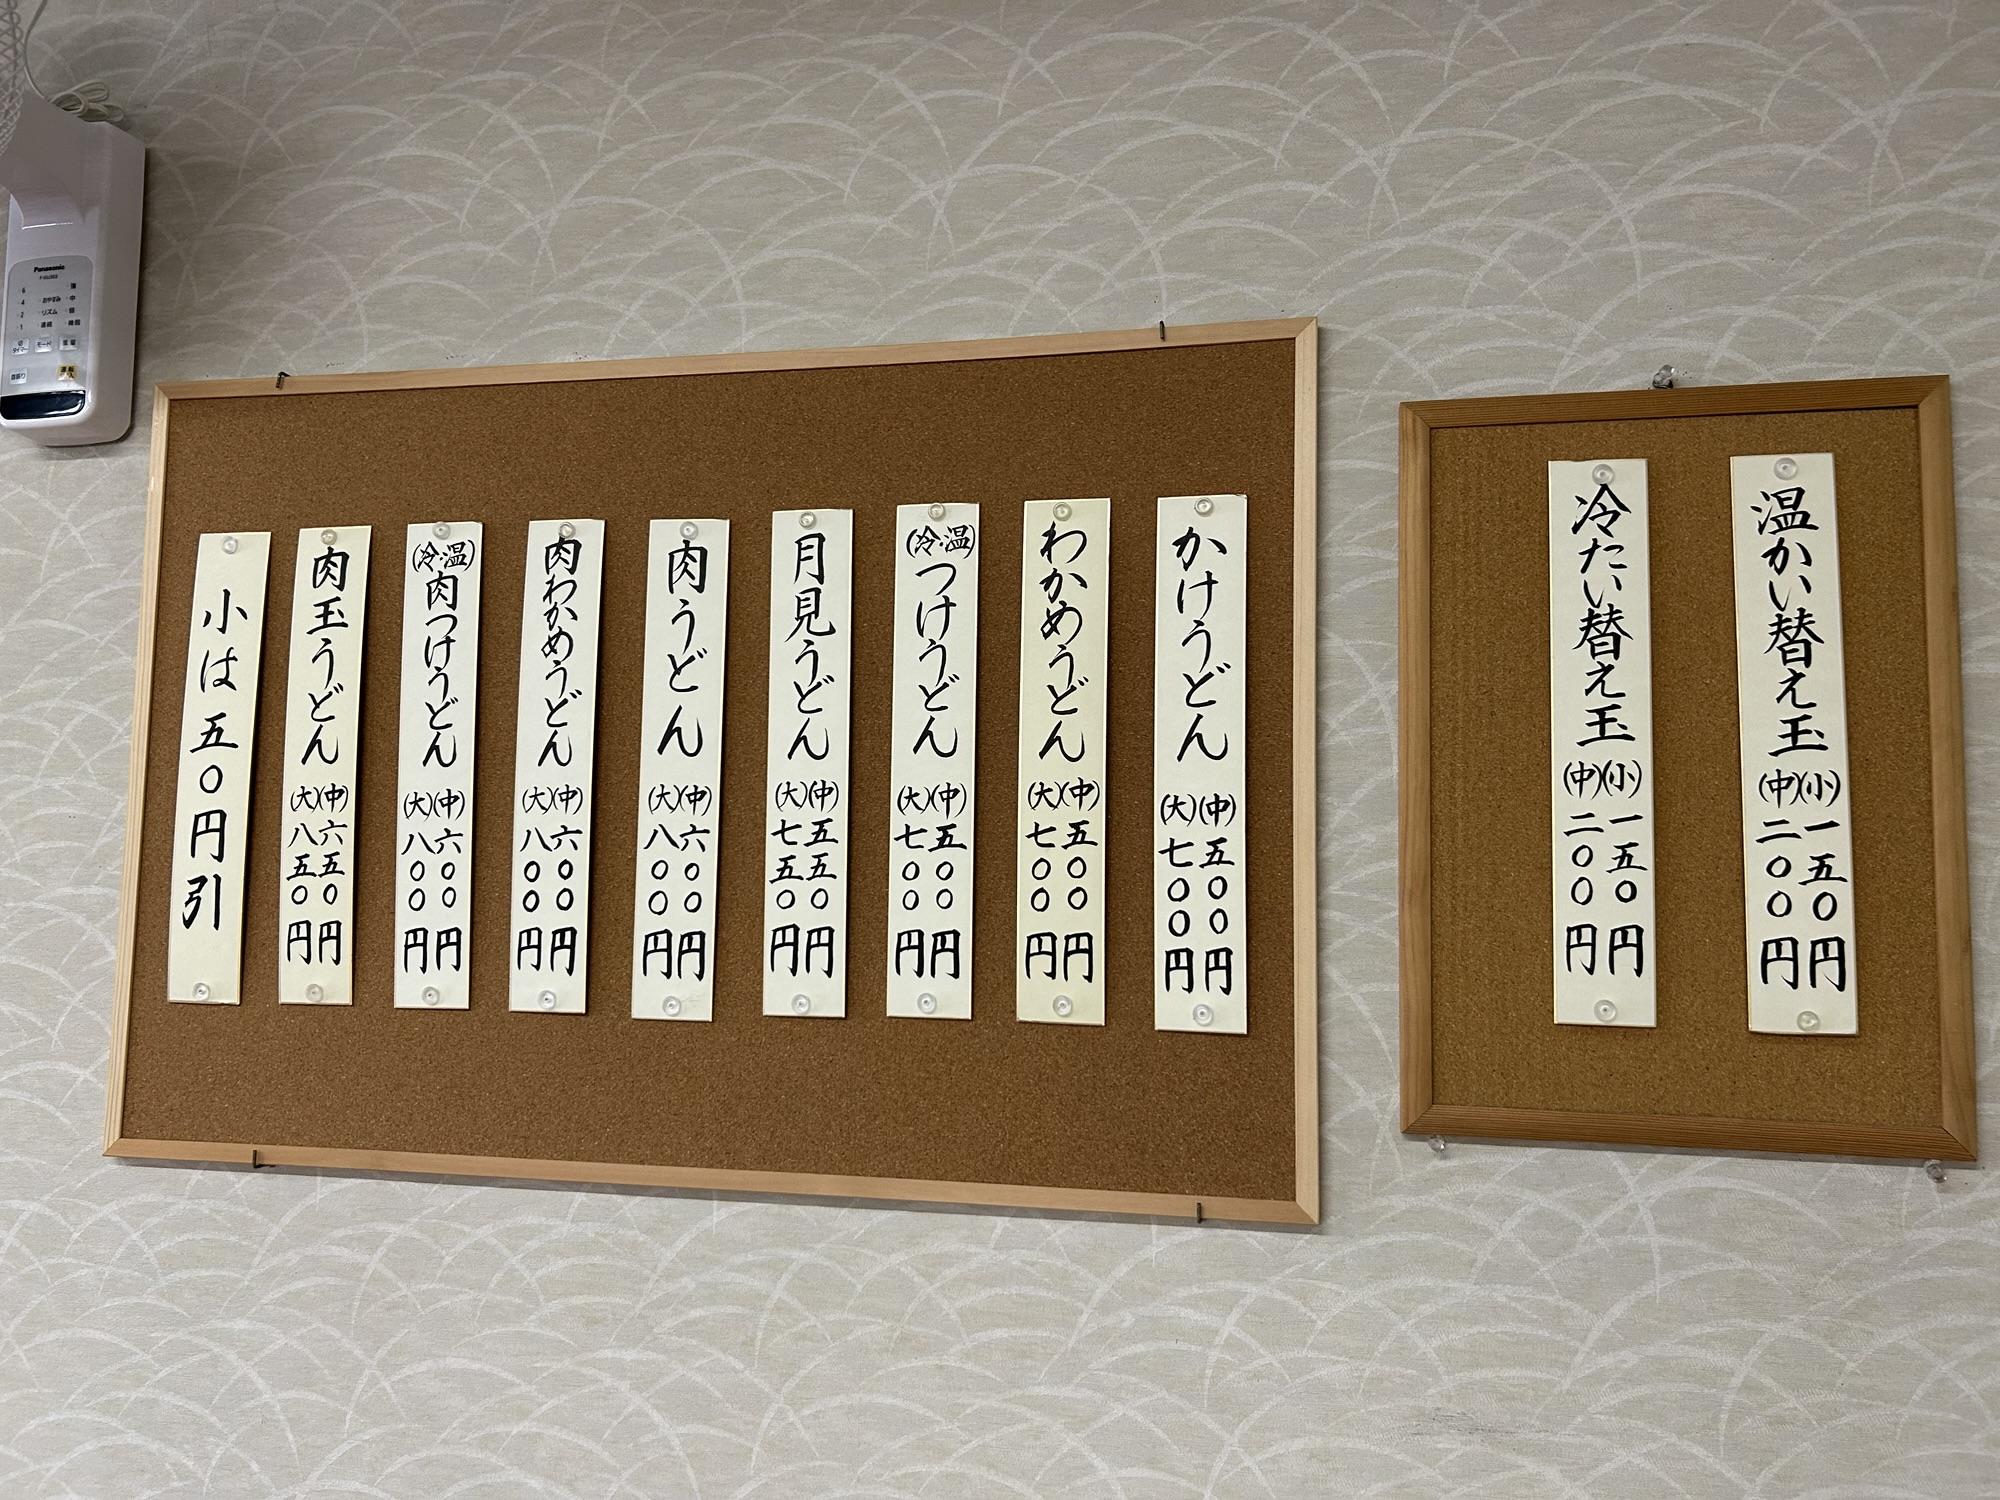 温かい替え玉 (小)一五〇円
(中)二〇〇円
冷たい替え玉 (小)一五〇円
(中)二〇〇円
かけうどん (中)五〇〇円
(大)七〇〇円
わかめうどん (中)五〇〇円
(大)七〇〇円
(冷・温)つけうどん (中)五〇〇円
(大)七〇〇円
月見うどん (中)五五〇円
(大)七五〇円
肉うどん (中)六〇〇円
(大)八〇〇円
肉わかめうどん (中)六〇〇円
(大)八〇〇円
(冷・温)肉つけうどん (中)六〇〇円
(大)八〇〇円
肉玉うどん (中)六五〇円
(大)八五〇円
小は五〇円引
Panasonic
6 強
4 おやすみ 中
2 リズム 弱
1 連続 微弱
切タイマー モード 風量
首振り